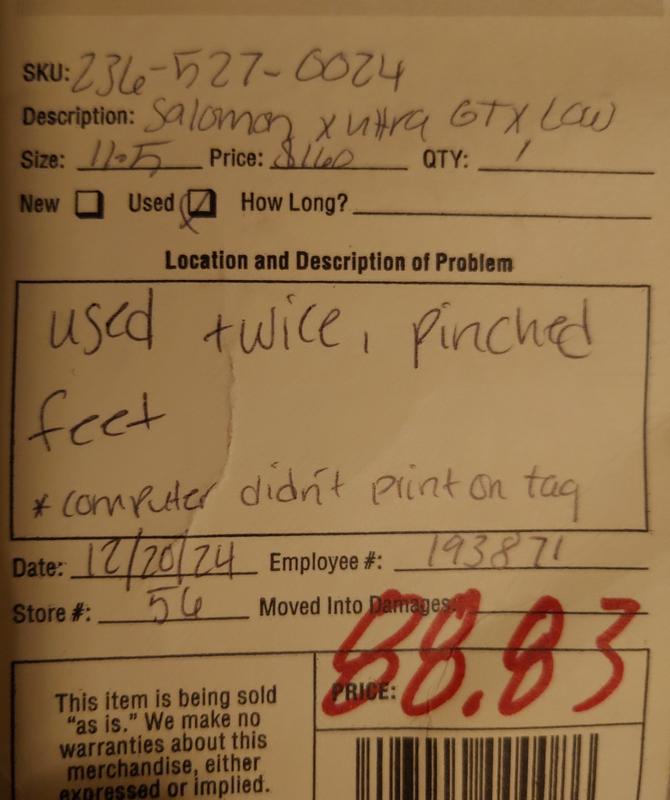 SKU: 236-527-0024
Description: Salomon x ultra GTX Low
Size: 11.5 Price: $160 QTY: 1
New Used How Long?
Location and Description of Problem
used twice, pinched
feet
* computer didn't print on tag
Date: 12/20/24 Employee #: 193871
Store #: 56 Moved Into Damages:
PRICE: 88.83
This item is being sold
"as is." We make no
warranties about this
merchandise, either
expressed or implied.